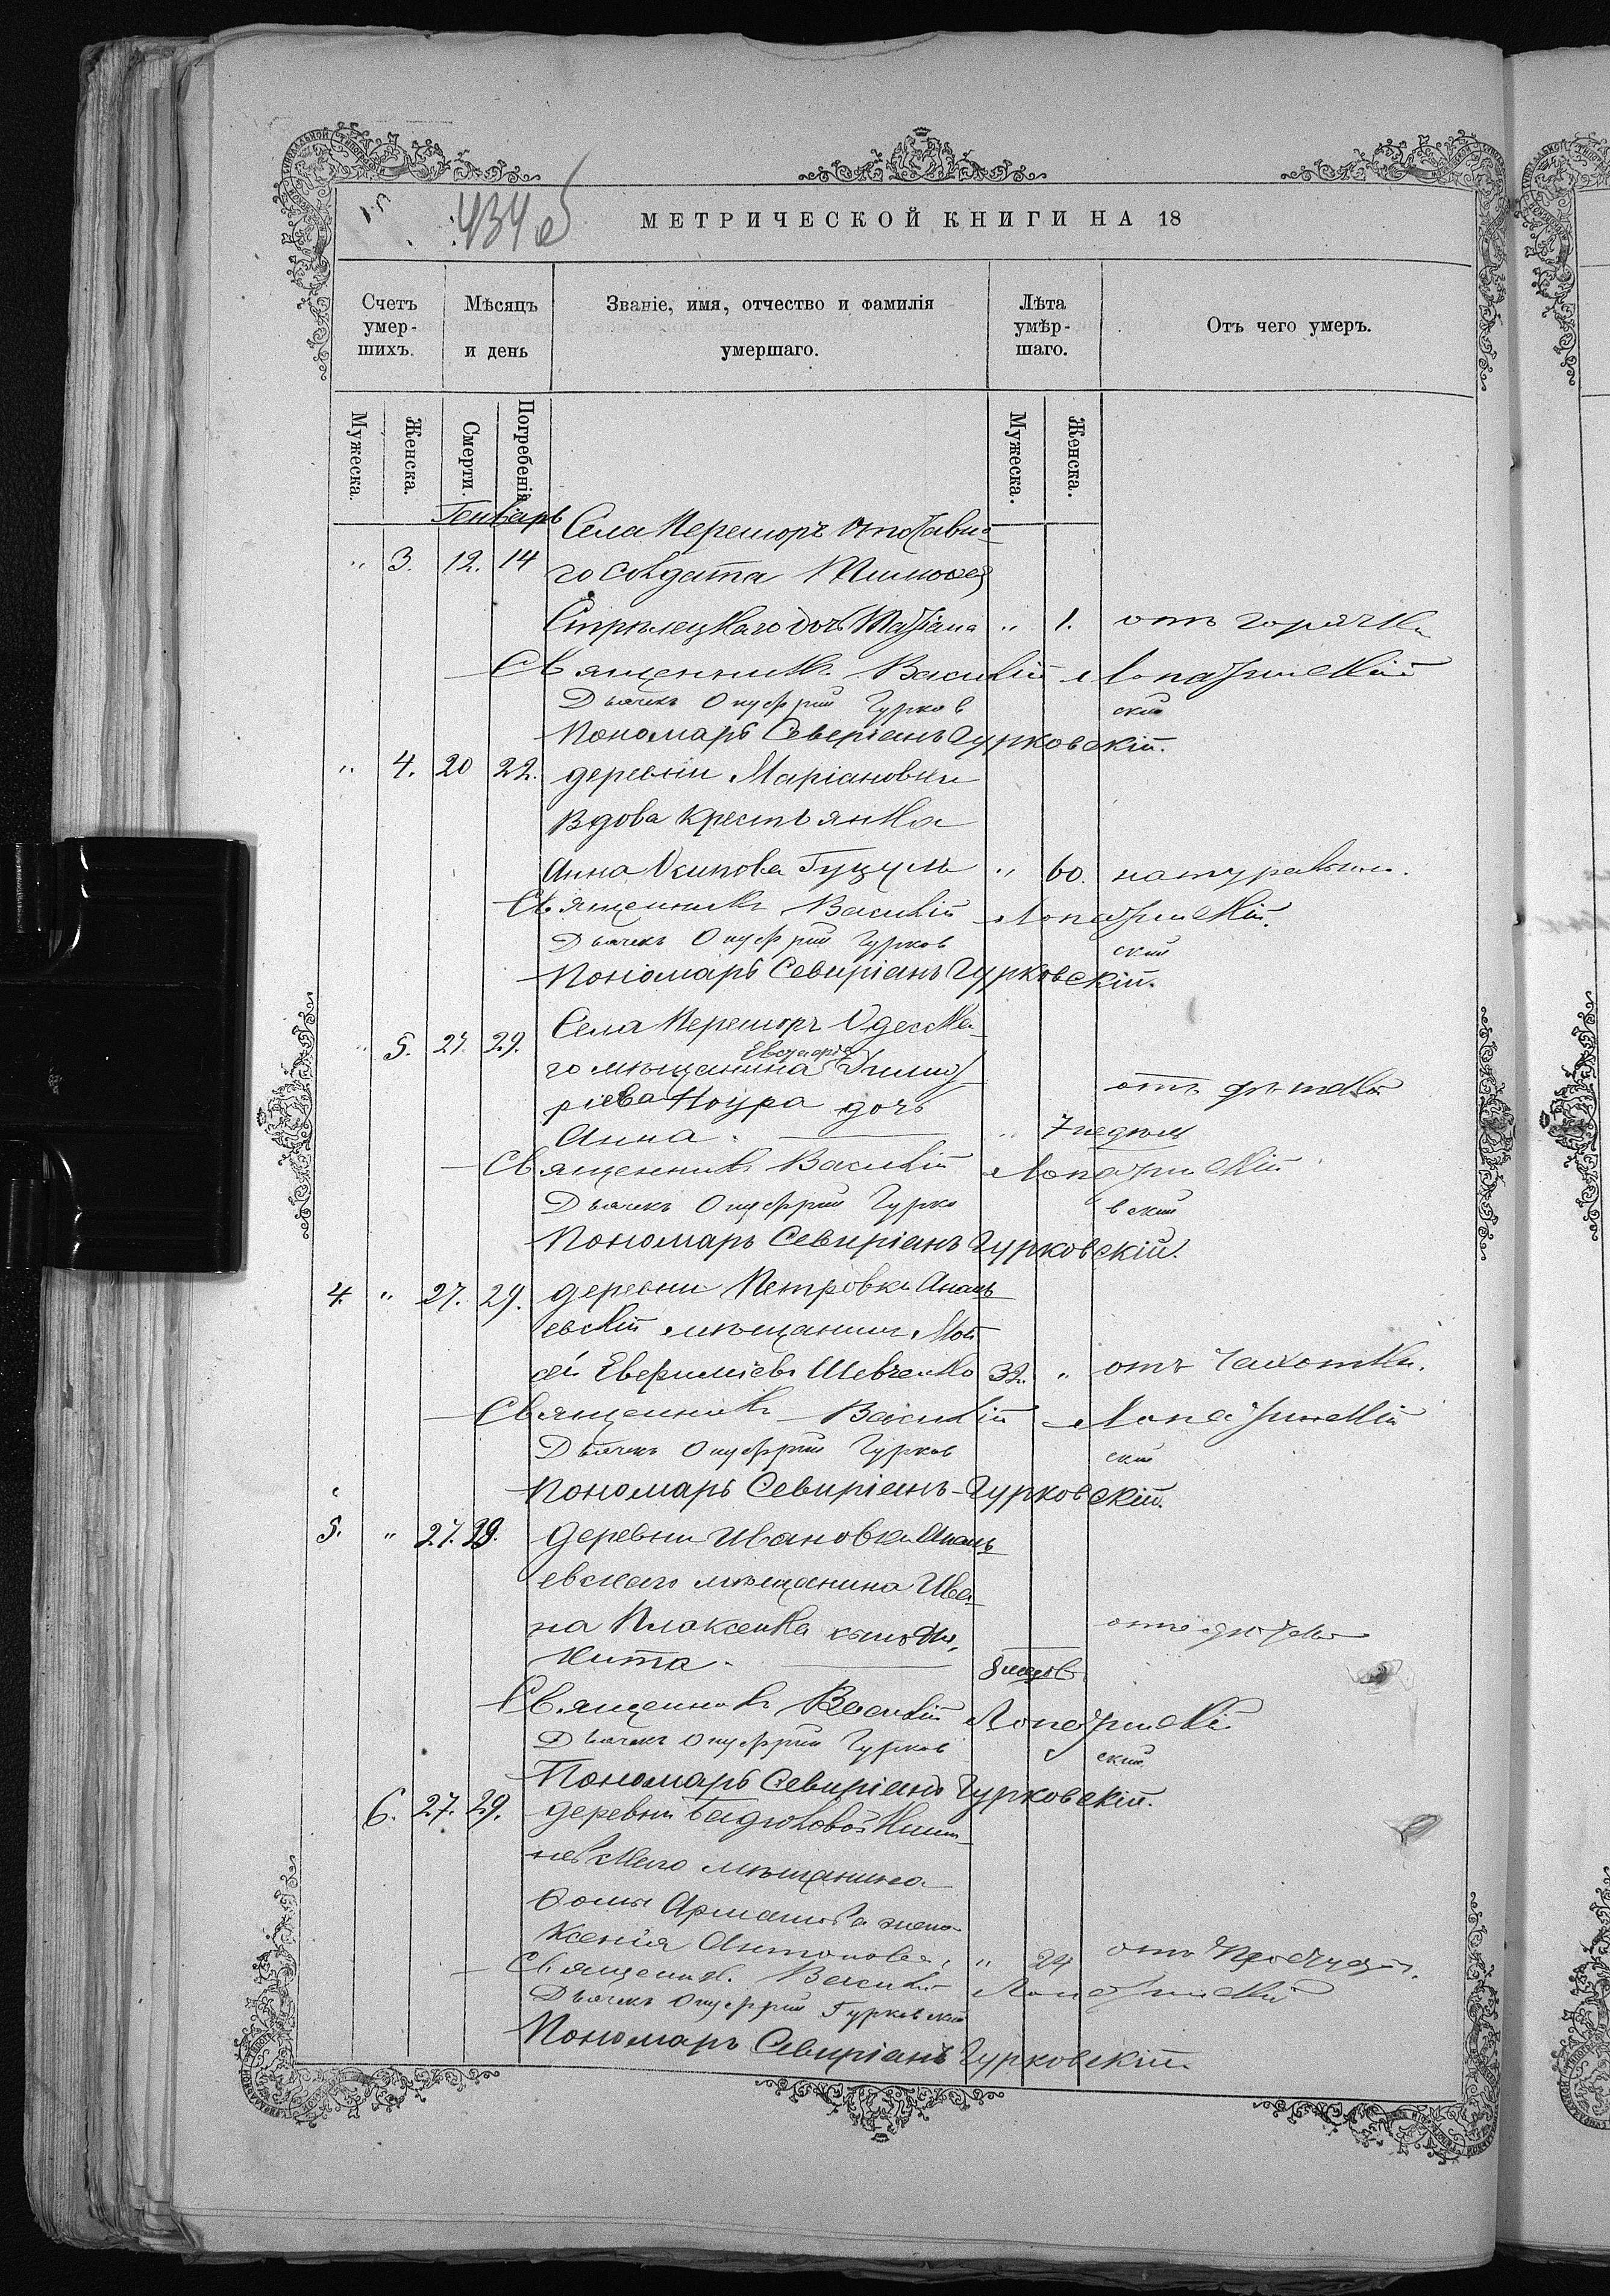 434 об
МЕТРИЧЕСКОЙ КНИГИ НА 18
Счетъ умер-шихъ.
Мѣсяцъ и день
Званіе, имя, отчество и фамилія умершаго.
Лѣта умѣр-шаго.
Отъ чего умеръ.
Мужеска.
Женска.
Смерти.
Погребенія
Мужеска.
Женска.
Генваръ
Села Перешоръ Отставна-
" 3. 12. 14 го Солдата Тимофея
Стрѣлецкаго дочь Татіана " 1. отъ горячки
Священникъ Василій Лопатинскій
Дьячекъ Онуфрій Гурковскій
Пономаръ Северіанъ Гурковскій.
" 4. 20 22. деревни Маріановки
Вдова крестьянка
Анна Осипова Гуцулъ " 60. натуральн.
Священникъ Василій Лопатинскій.
Дьячекъ Онуфрій Гурковскій
Пономаръ Севиріанъ Гурковскій.
" 5. 27. 29. Села Перешоръ Одесска-
го мѣщанина Димит
ріева дочь
Анна. " 7 недѣль
Священникъ Василій Лопатинскій
Дьячекъ Онуфрій Гурковскій
Пономаръ Севиріанъ Гурковскій.
4. " 27. 29. деревни Петровки Анань
евскій мѣщанинъ Мои
сей Евфиміевъ Шевченко 32. " отъ чахотки.
Священникъ Василій Лопатинскій
Дьячекъ Онуфрій Гурковскій
Пономаръ Севиріанъ Гурковскій.
5. " 27. 29. деревни Ивановки Анань
евскаго мѣщанина Ива-
на Плаксенка сынъ Ни-
кита. 8 месяцов
Священникъ Василій Лопатинскій
Дьячекъ Онуфрій Гурковскій
Пономаръ Севиріанъ Гурковскій.
6. 27. 29. деревни Кищи-
невскаго мѣщанина
Фомы жена
Ксенія Антонова, " 24
Священник. Василій Лопатинскій
Дьячекъ Онуфрій Гурковскій
Пономаръ Севиріанъ Гурковскій.